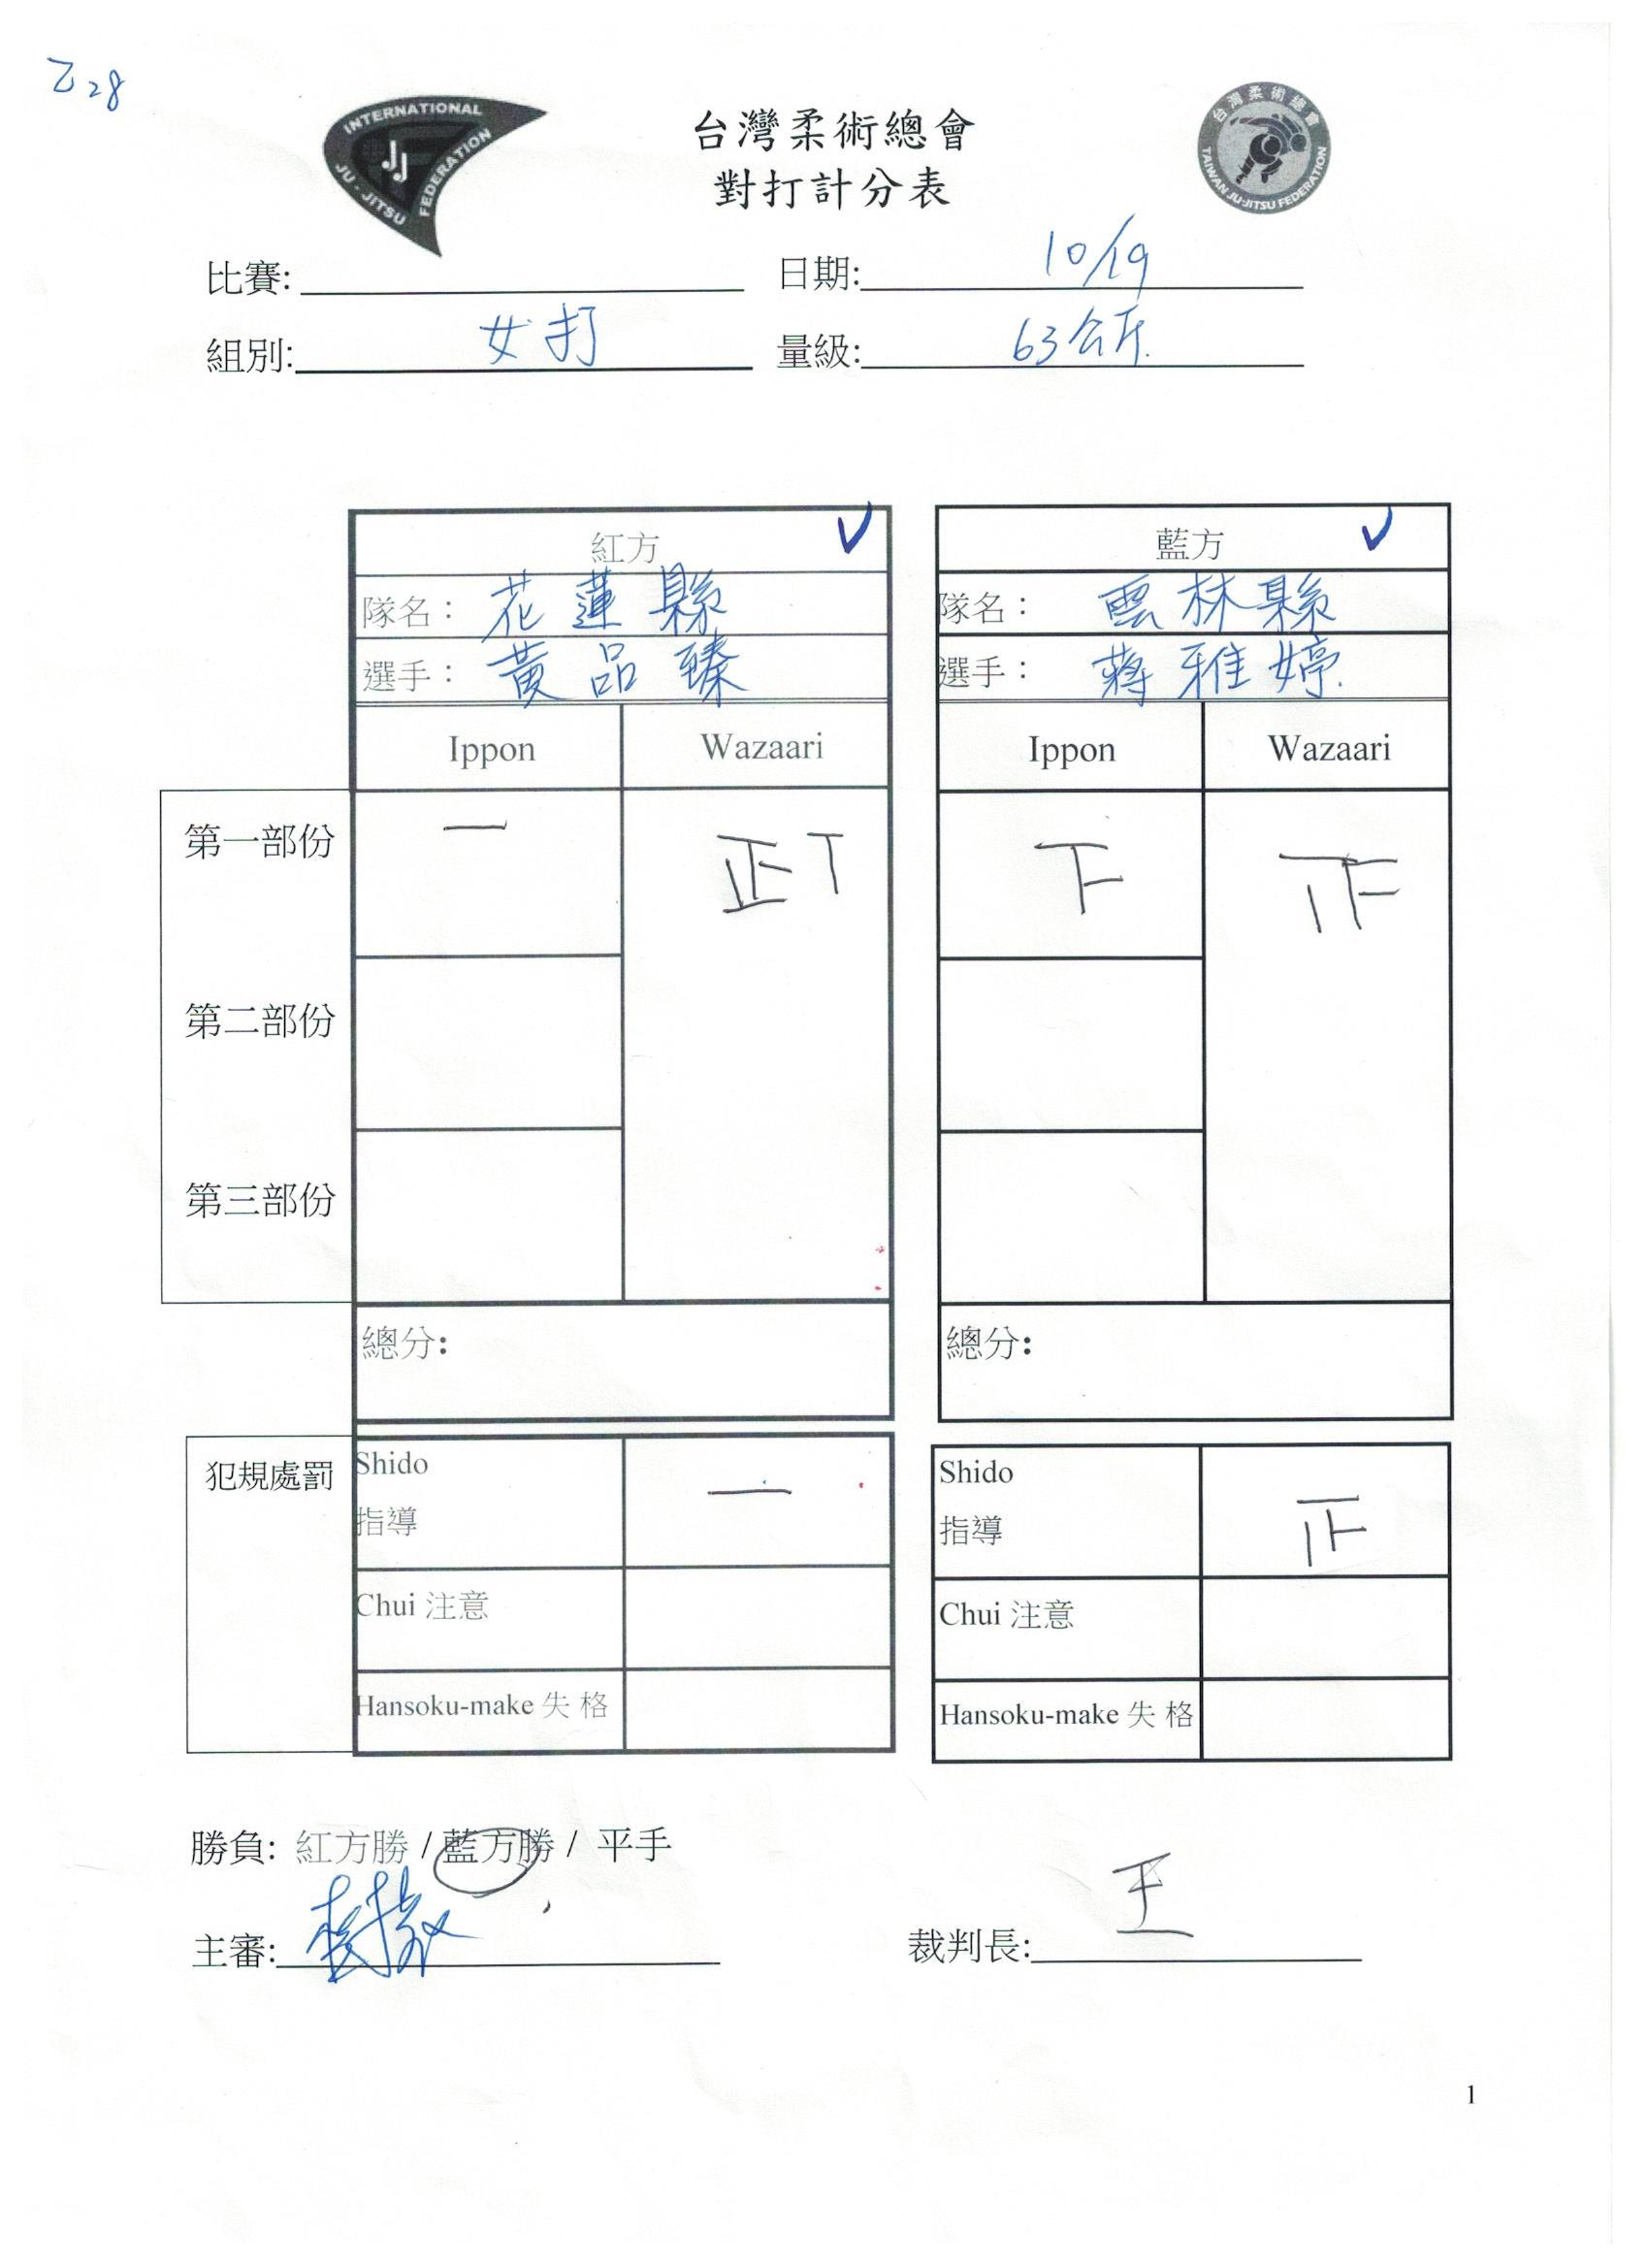 乙28
INTERNATIONAL
JJ
JU-JITSU FEDERATION
台灣柔術總會
對打計分表
台灣柔術總會
TAIWAN JU-JITSU FEDERATION
比賽: 日期: 10/19
組別: 女打 量級: 63公斤.
紅方 ✓ 藍方 ✓
隊名: 花蓮縣 隊名: 雲林縣
選手: 黃品臻 選手: 蔣雅婷.
Ippon Wazaari Ippon Wazaari
第一部份 一 正丅 下 𤴓
第二部份
第三部份
總分: 總分:
犯規處罰 Shido 一 Shido
指導 指導
Chui 注意 Chui 注意
Hansoku-make 失 格 Hansoku-make 失 格
勝負: 紅方勝 / 藍方勝 / 平手
主審: 裁判長: 王
1